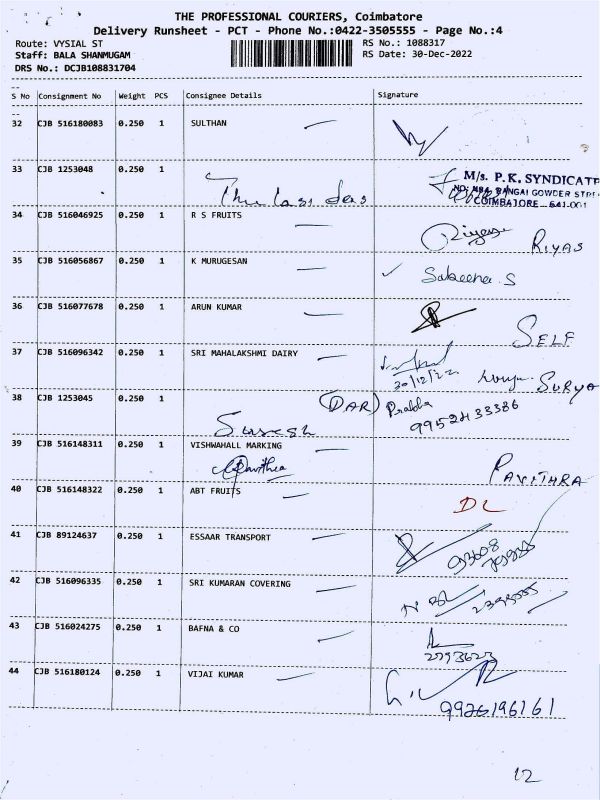 THE PROFESSIONAL COURIERS, Coimbatore
Delivery Runsheet - PCT - Phone No.:0422-3505555 - Page No.:4
Route: VYSIAL ST
RS No.: 1088317
Staff: BALA SHANMUGAM
RS Date: 30-Dec-2022
DRS No.: DCJB108831704
S No Consignment No Weight PCS Consignee Details Signature
32 CJB 516180083 0.250 1 SULTHAN
33 CJB 1253048 0.250 1
Thulasi das
M/s. P.K. SYNDICATE
RANGAI GOWDER STRE
COIMBATORE - 641 001
34 CJB 516046925 0.250 1 R S FRUITS
Riyas RIYAS
35 CJB 516056867 0.250 1 K MURUGESAN
Sakeena S
36 CJB 516077678 0.250 1 ARUN KUMAR
SELF
37 CJB 516096342 0.250 1 SRI MAHALAKSHMI DAIRY
30/12/22 SURYA
38 CJB 1253045 0.250 1
(DAR) Prabha
Suresh
9952433386
39 CJB 516148311 0.250 1 VISHWAHALL MARKING
Pavithra PAVITHRA
40 CJB 516148322 0.250 1 ABT FRUITS
DL
41 CJB 89124637 0.250 1 ESSAAR TRANSPORT
42 CJB 516096335 0.250 1 SRI KUMARAN COVERING
43 CJB 516024275 0.250 1 BAFNA & CO
2393623
44 CJB 516180124 0.250 1 VIJAI KUMAR
9926196161
12